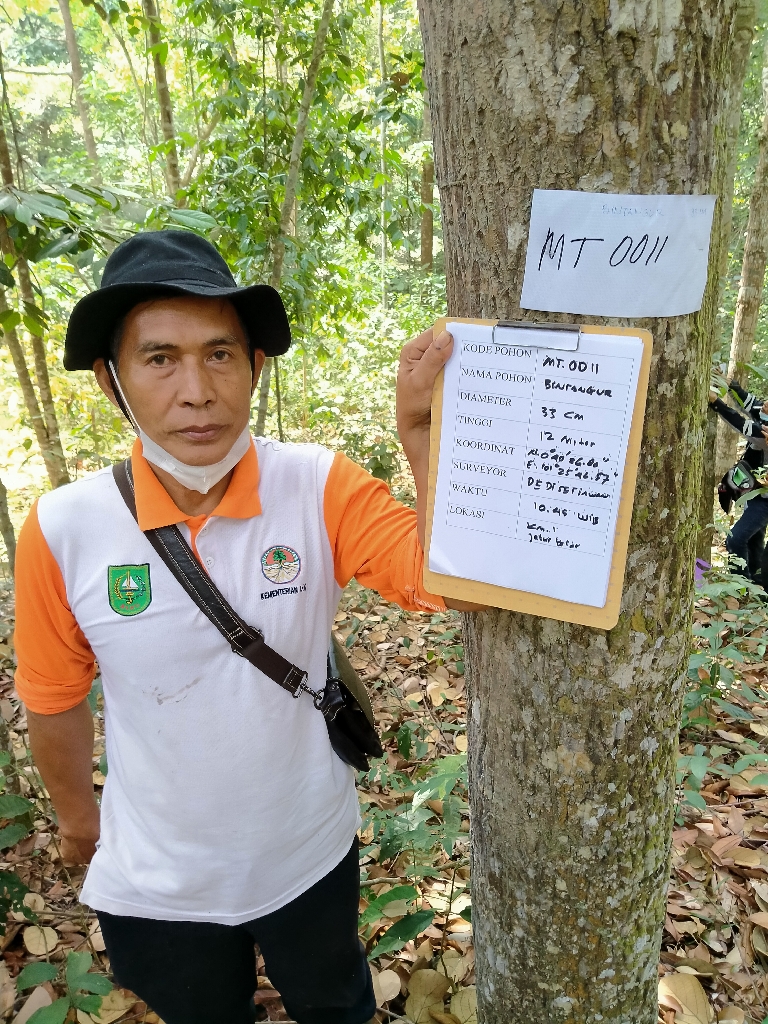 MT 0011
KODE POHON MT.0011
NAMA POHON BINTANGUR
DIAMETER 33 cm
TINGGI 12 Miter
KOORDINAT
SURVEYOR DEDI SETIAWAN
WAKTU 10.45 WIB
LOKASI KM.1
jalur besar
KEMENTERIAN